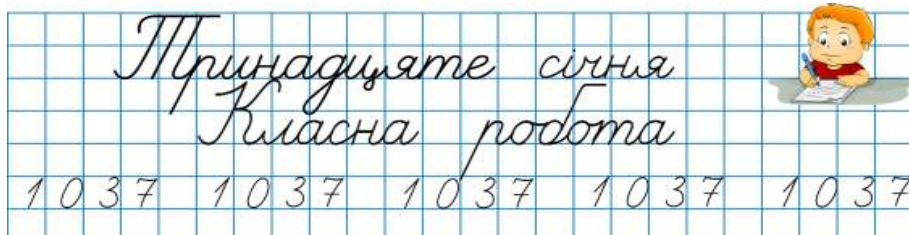 Тринадцяте січня
Класна робота
1 0 3 7 1 0 3 7 1 0 3 7 1 0 3 7 1 0 3 7